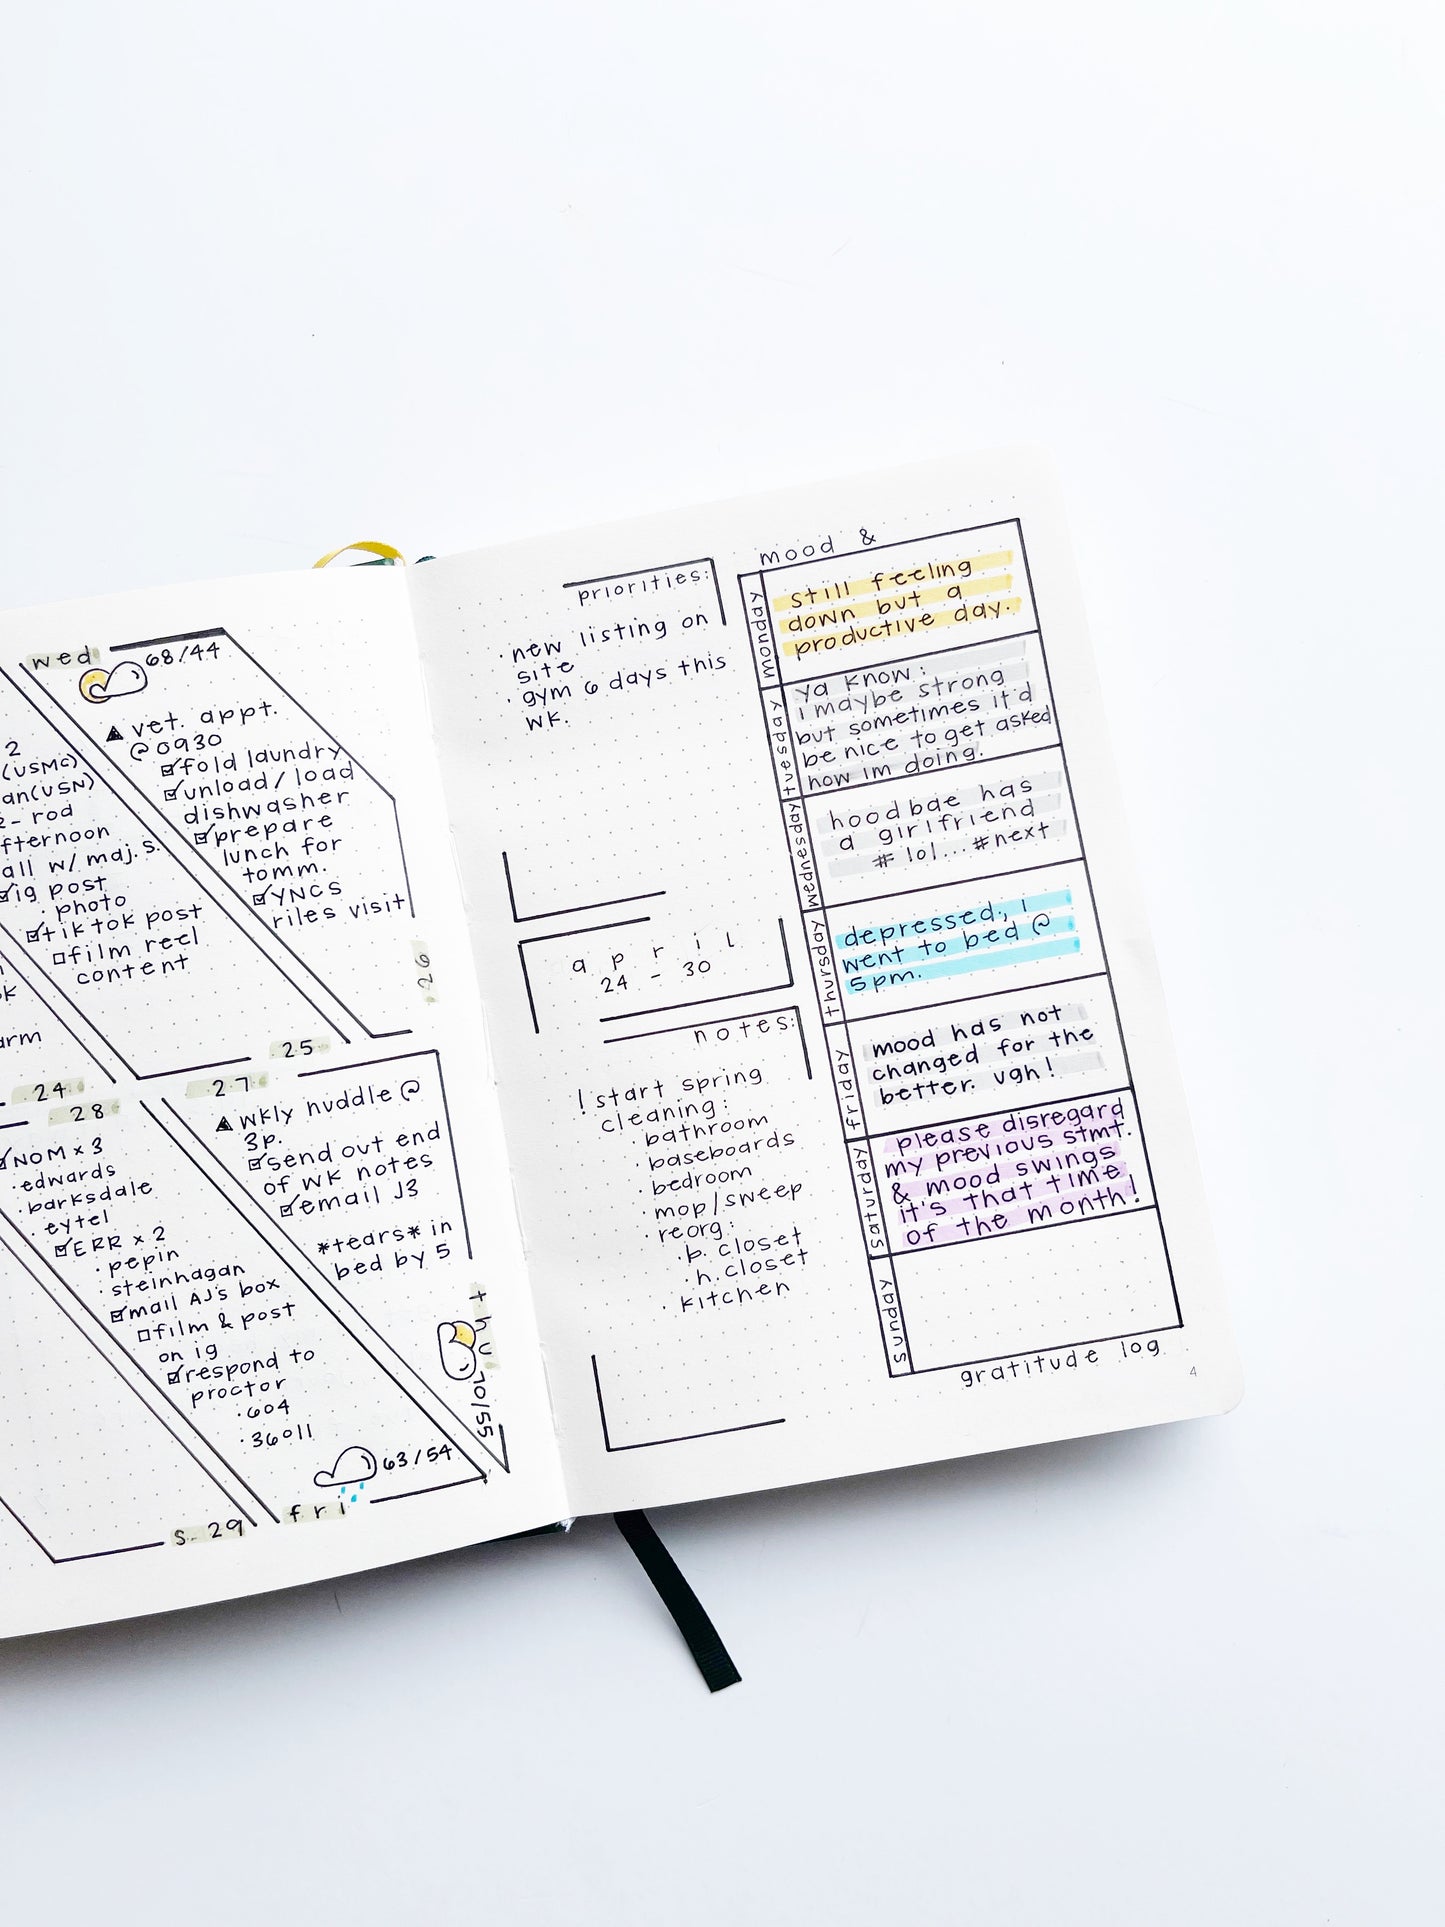 wed
68/44
▲ vet. appt.
@0930
☑fold laundry
☑unload/load
dishwasher
☑prepare
lunch for
tomm.
☑YNCS
riles visit
2
(USMC)
an(USN)
rod
fternoon
all w/ maj. s.
☑ig post
· photo
☑tiktok post
☐film reel
content
arm
24
25
26
27
▲ wkly huddle @
3p.
☑send out end
of wk notes
☑email J3
*tears* in
bed by 5
thu
70/55
28
☑NOM x 3
·edwards
·barksdale
·eytel
☑ERR x 2
·pepin
·steinhagan
☑mail AJ's box
☐film & post
on ig
☑respond to
proctor
·604
·36011
63/54
fri
s. 29
priorities:
· new listing on
site
· gym 6 days this
wk.
april
24 - 30
notes:
! start spring
cleaning:
· bathroom
· baseboards
· bedroom
· mop/sweep
· reorg:
· b. closet
· h. closet
· kitchen
mood &
monday
still feeling
down but a
productive day.
tuesday
ya know:
i maybe strong
but sometimes it'd
be nice to get asked
how im doing.
wednesday
hoodbae has
a girlfriend
# lol... #next
thursday
depressed, i
went to bed @
5pm.
friday
mood has not
changed for the
better. ugh!
saturday
please disregard
my previous stmt.
& mood swings
it's that time
of the month!
sunday
gratitude log
4